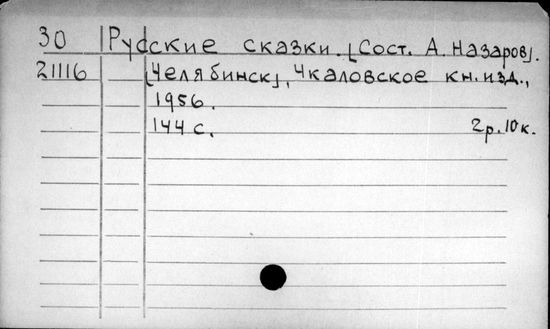 30 Русские сказки. [Сост. А. Назаров].
21116 [Челябинск], Чкаловское кн. изд.,
1956.
144 с. 2р. 10к.